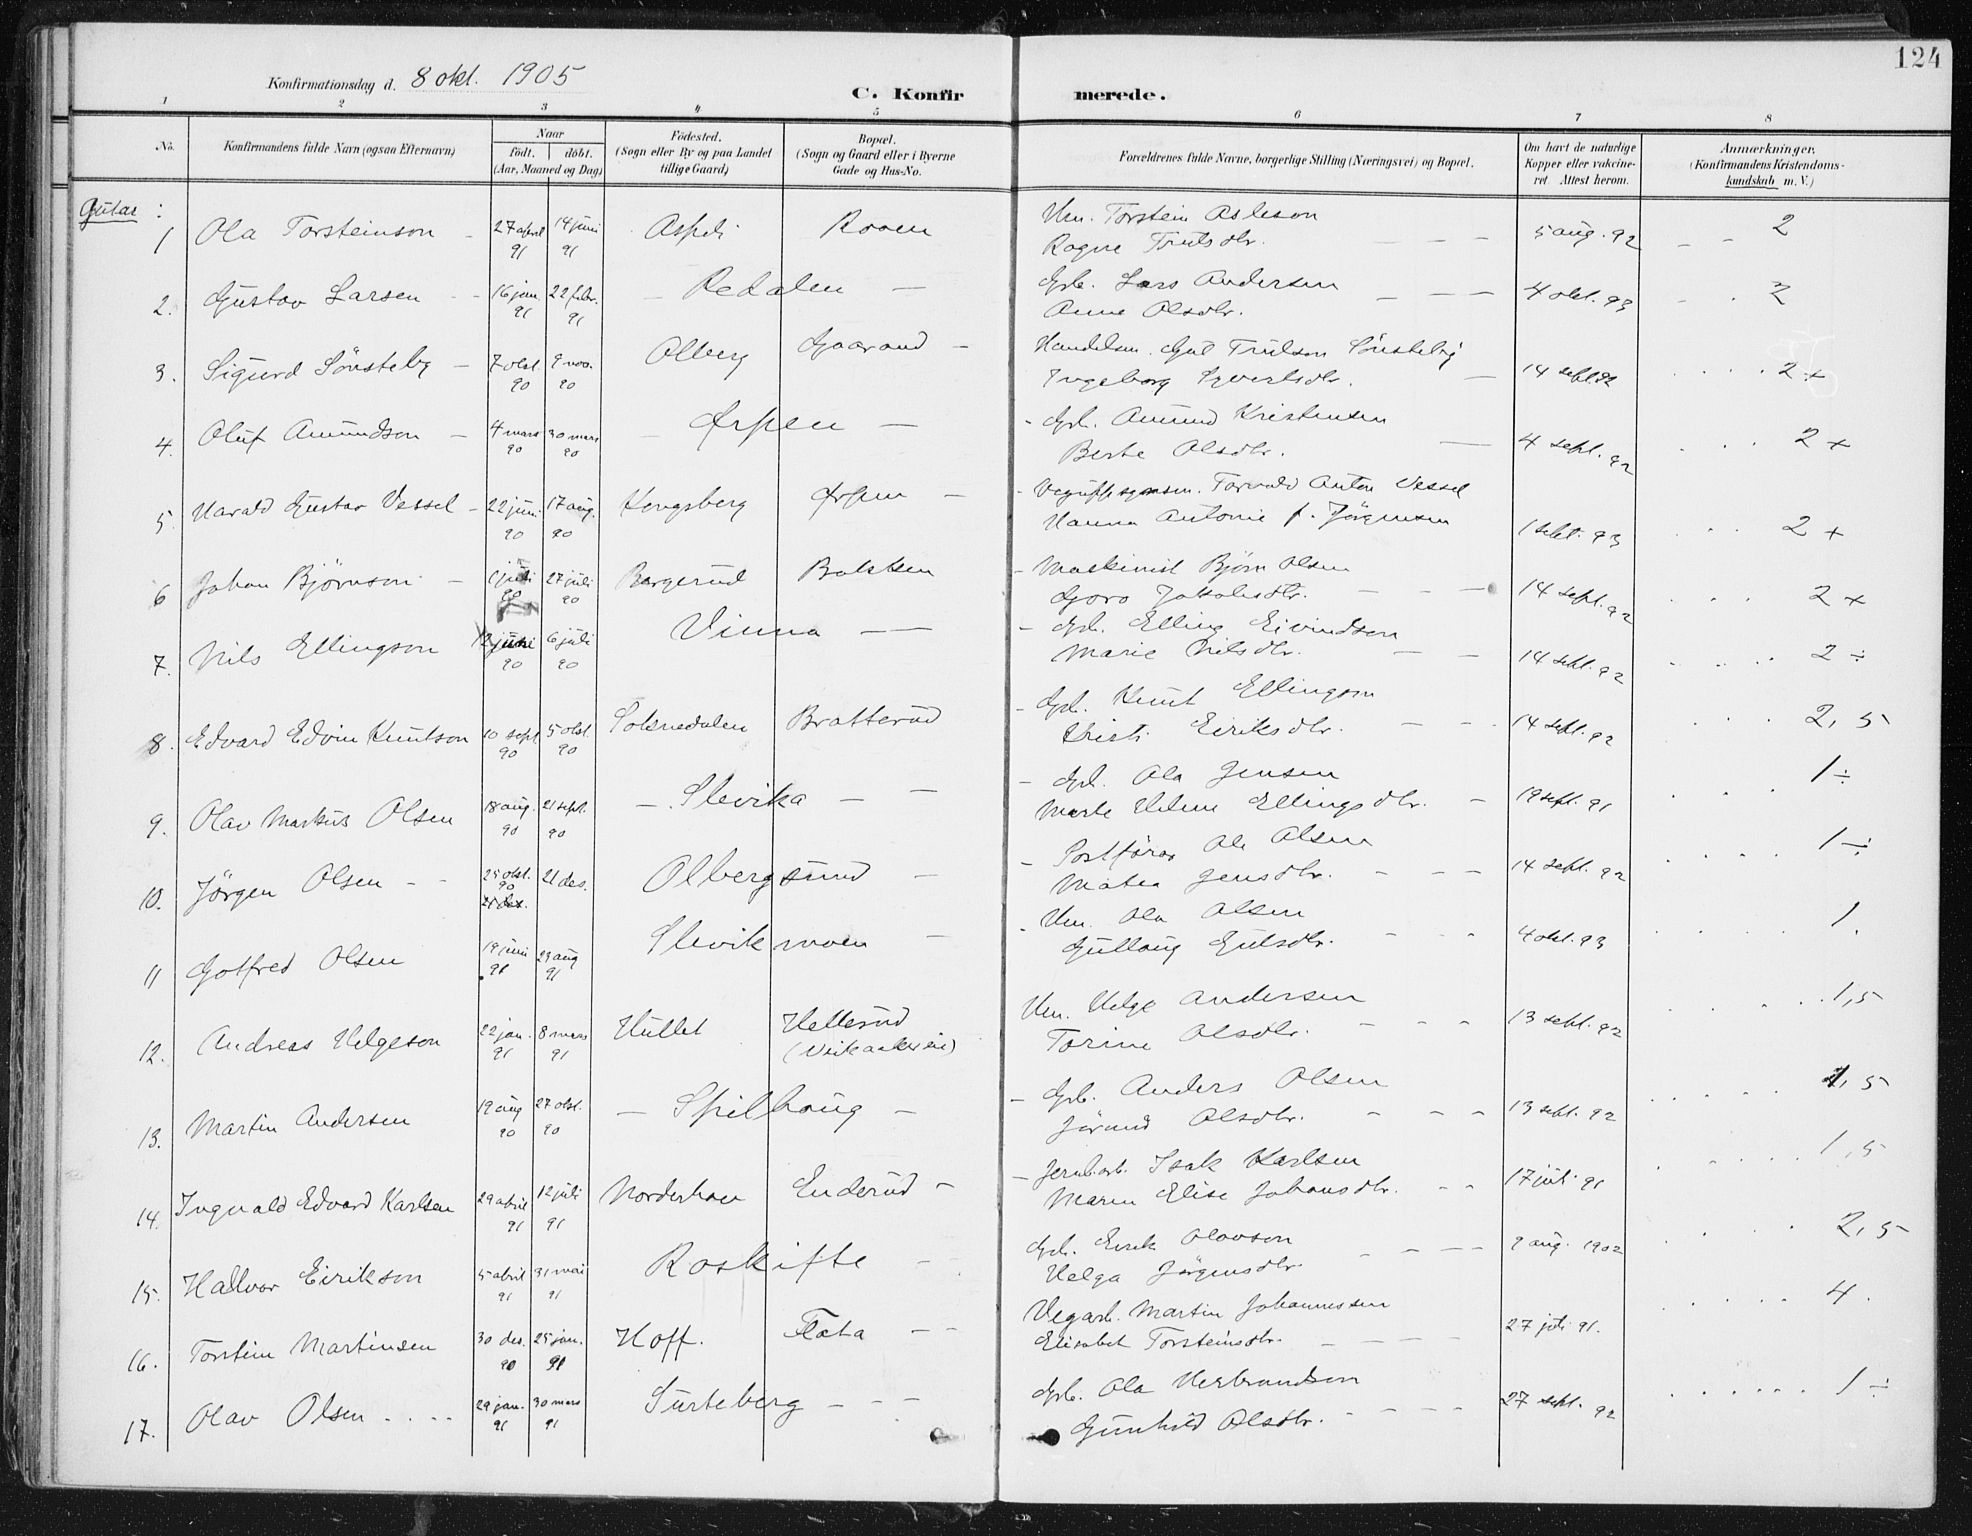 124
Konfirmationsdag d. 8 okt. 1905
C. Konfirmerede.
1 2 3 4 5 6 7 8
No. Konfirmandens fulde Navn (ogsaa Efternavn) Naar födt. döbt. (Aar, Maaned og Dag) Födested. (Sogn eller By og paa Landet tillige Gaard) Bopæl. (Sogn og Gaard eller i Byerne Gade og Hus-No. Forældrenes fulde Navne, borgerlige Stilling (Næringsvei) og Bopæl. Om havt de naturlige Kopper eller vakcineret. Attest herom. Anmærkninger. (Konfirmandens Kristendomskundskab m. V.)
Gutar:
1 Ola Torsteinson 27 april 91 14 juni 91 Aspeli Roven Um. Torstein Asleson Ragne Trulsdtr. 5 aug. 92 2
2. Gustav Larsen 16 jan. 91 22 febr. 91 Redalen Gbr. Lars Andersen Anne Olsdtr. 4 okt. 93 2
3. Sigurd Sönsteby 7 okt 90 9 nov. 90 Olberg Gaarand Handelsm. Gul Trulson Sönsteby Ingeborg Syvertsdtr. 14 sept 92 2 +
4. Oluf Amundson 4 mars 90 30 mars 90 Ørpen Gbr. Amund Kristensen Berte Olsdtr. 4 sept. 92 2 +
5. Harald Gustav Vessel 22 juni 90 17 aug. 90 Kongsberg Ørpen Torvald Anton Vessel Hanna Antonie f. Jörgensen 1 sept. 93 2 +
6 Johan Björnson 1 juli 90 27 juli 90 Bergerud Bakken Maskinist Björn Olsen Goro Jakobsdtr. 14 sept. 92 2 +
7. Nils Ellingson 12 juni 90 6 juli 90 Vinna Gbr. Elling Eivindson Marie Nilsdtr. 14 sept. 92 2 ÷
8. Edvard Edvin Knutson 10 sept 90 5 okt 90 Soknedalen Bratterud Gbr. Knut Ellingson Kristi Eiriksdtr. 14 sept. 92 2,5
9. Olav Markus Olsen 18 aug. 90 21 sept. 90 Slevika Gbr. Ola Jensen Marte Helene Ellingsdtr. 19 sept. 91 1 ÷
10. Jörgen Olsen 25 okt. 90 21 des. 21 des. Olbergsund Postförar Ole Olsen Matea Jensdtr. 14 sept. 92 1 ÷
11 Gotfred Olsen 19 juni 91 23 aug 91 Slevikmoen Um. Ola Olsen Gullaug Gulsdtr. 4 okt. 93 1.
12. Andreas Helgeson 22 jan. 91 8 mars 91 Hullet Hellerud (Vikaakereie) Um. Helge Andersen Torine Olsdtr. 13 sept. 92 1,5
13. Martin Andersen 19 aug 90 27 okt. 90 Spilhaug Gbr. Anders Olsen Jörand Olsdtr. 13 sept. 92 1,5
14. Ingvald Edvard Karlsen 29 april 91 12 juli 91 Norderhov Enderud Jernb.arb. Isak Karlsen Maren Elise Johansdtr. 17 juli 91 1,5
15. Hallvor Eirikson 5 april 91 31 mai 91 Roskifte Gbr. Eirik Olavson Helga Jörgensdtr. 9 aug. 1902 2,5
16. Torstein Martinsen 30 des. 90 25 jan. 91 Hoff. Flata Vegarb. Martin Johannessen Elisabet Torsteinsdtr. 27 juli 91. 4.
17. Olav Olsen 29 jan. 91 30 mars 91 Surteberg Gbr. Ola Herbrandson Gunhild Olsdtr. 27 sept. 92 1 ÷